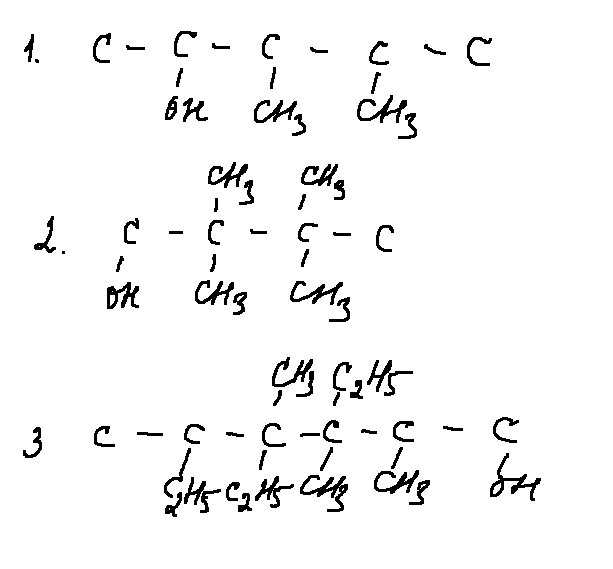 1. C - C - C - C - C
OH CH3 CH3
CH3 CH3
2. C - C - C - C
OH CH3 CH3
CH3 C2H5
3 C - C - C - C - C - C
C2H5 C2H5 CH3 CH3 OH